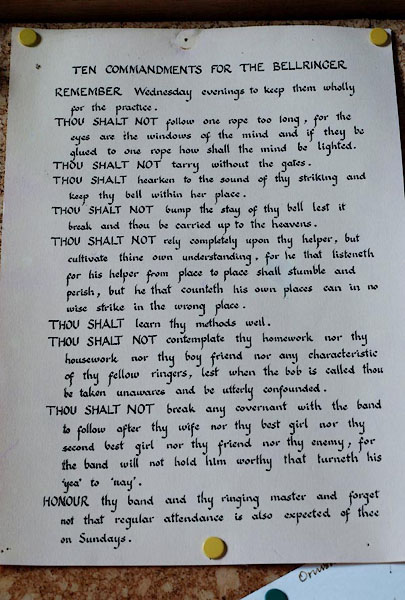 TEN COMMANDMENTS FOR THE BELLRINGER
REMEMBER Wednesday evenings to keep them wholly
for the practice.
THOU SHALT NOT follow one rope too long, for the
eyes are the windows of the mind and if they be
glued to one rope how shall the mind be lighted.
THOU SHALT NOT tarry without the gates.
THOU SHALT hearken to the sound of thy striking and
keep thy bell within her place.
THOU SHALT NOT bump the stay of thy bell lest it
break and thou be carried up to the heavens.
THOU SHALT NOT rely completely upon thy helper, but
cultivate thine own understanding, for he that listeneth
for his helper from place to place shall stumble and
perish, but he that counteth his own places can in no
wise strike in the wrong place.
THOU SHALT learn thy methods well.
THOU SHALT NOT contemplate thy homework nor thy
housework nor thy boy friend nor any characteristic
of thy fellow ringers, lest when the bob is called thou
be taken unawares and be utterly confounded.
THOU SHALT NOT break any covenant with the band
to follow after thy wife nor thy best girl nor thy
second best girl nor thy friend nor thy enemy, for
the band will not hold him worthy that turneth his
'yea' to 'nay'.
HONOUR thy band and thy ringing master and forget
not that regular attendance is also expected of thee
on Sundays.